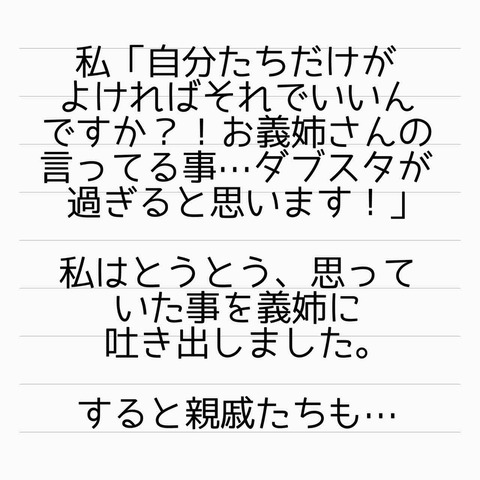 私「自分たちだけが
よければそれでいいん
ですか？！お義姉さんの
言ってる事…ダブスタが
過ぎると思います！」
私はとうとう、思って
いた事を義姉に
吐き出しました。
すると親戚たちも…